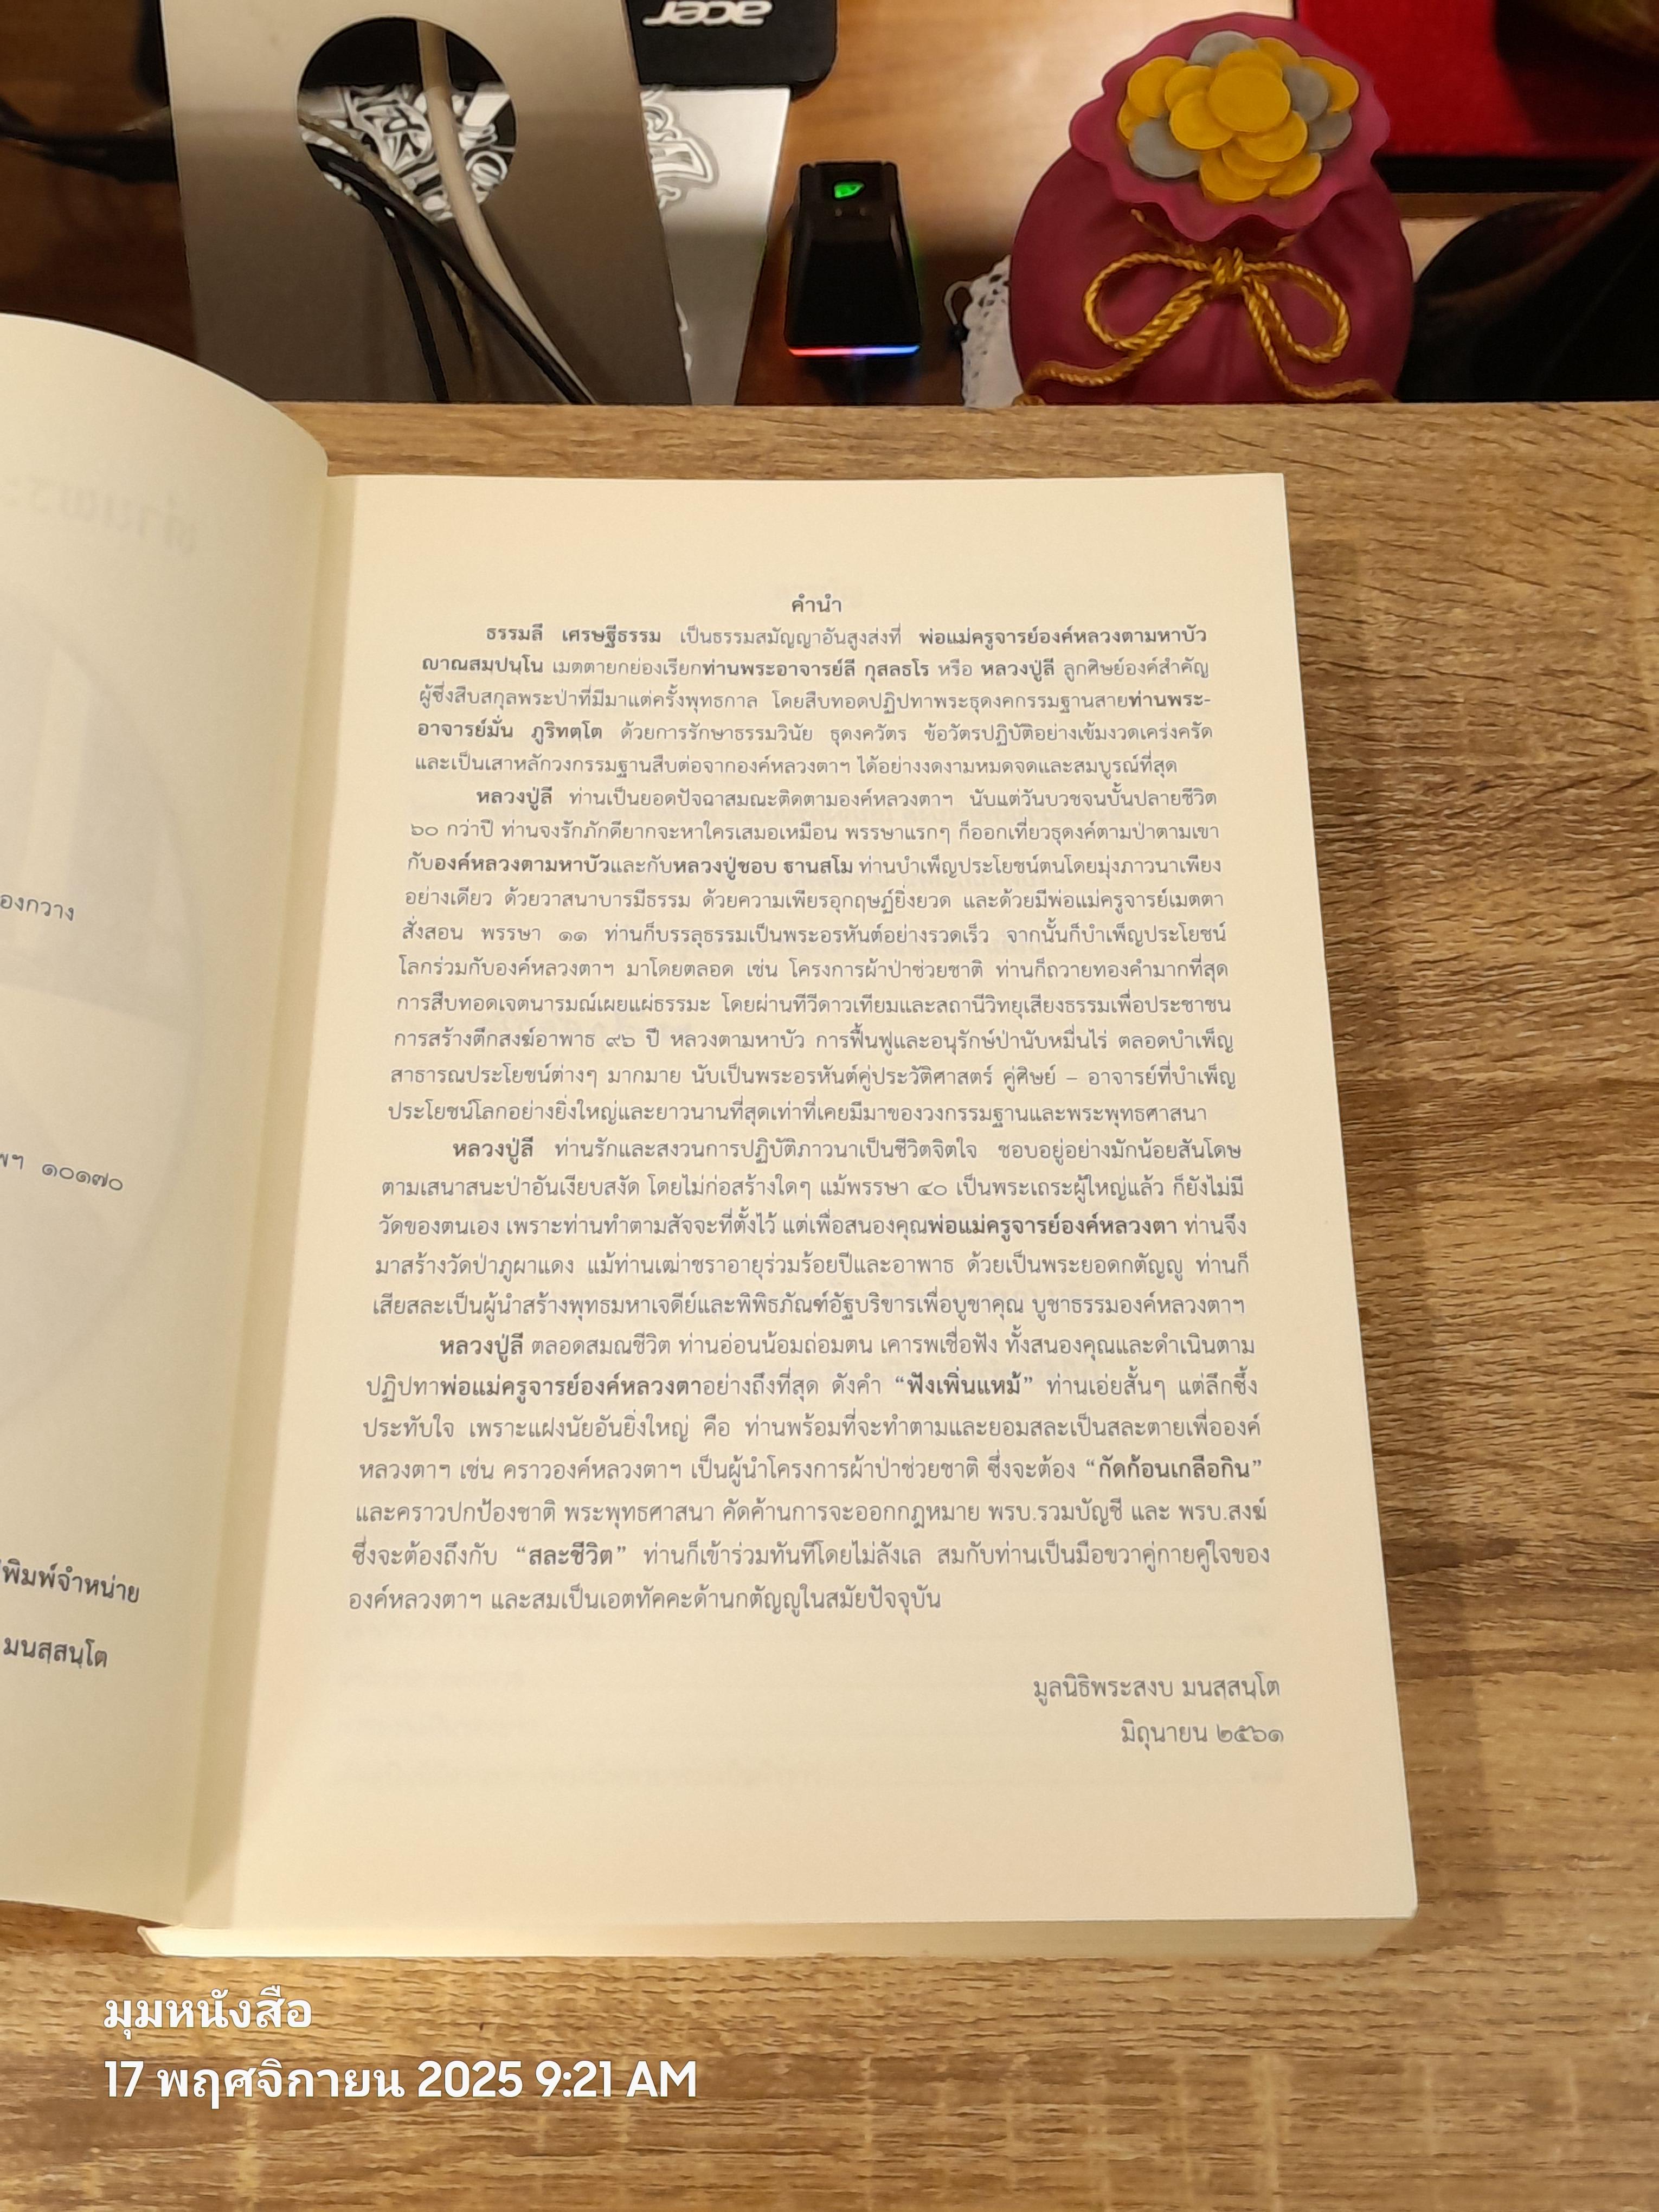 acer
องกวาง
พฯ ๑๐๑๗๐
พิมพ์จำหน่าย
มนสฺสนฺโต
คำนำ
ธรรมลี เศรษฐีธรรม เป็นธรรมสมัญญาอันสูงส่งที่ พ่อแม่ครูจารย์องค์หลวงตามหาบัว
ญาณสมฺปนฺโน เมตตายกย่องเรียกท่านพระอาจารย์ลี กุสลธโร หรือ หลวงปู่ลี ลูกศิษย์องค์สำคัญ
ผู้ซึ่งสืบสกุลพระป่าที่มีมาแต่ครั้งพุทธกาล โดยสืบทอดปฏิปทาพระธุดงคกรรมฐานสายท่านพระ-
อาจารย์มั่น ภูริทตฺโต ด้วยการรักษาธรรมวินัย ธุดงควัตร ข้อวัตรปฏิบัติอย่างเข้มงวดเคร่งครัด
และเป็นเสาหลักวงกรรมฐานสืบต่อจากองค์หลวงตาฯ ได้อย่างงดงามหมดจดและสมบูรณ์ที่สุด
หลวงปู่ลี ท่านเป็นยอดปัจฉาสมณะติดตามองค์หลวงตาฯ นับแต่วันบวชจนบั้นปลายชีวิต
๖๐ กว่าปี ท่านจงรักภักดียากจะหาใครเสมอเหมือน พรรษาแรกๆ ก็ออกเที่ยวธุดงค์ตามป่าตามเขา
กับองค์หลวงตามหาบัวและกับหลวงปู่ชอบ ฐานสโม ท่านบำเพ็ญประโยชน์ตนโดยมุ่งภาวนาเพียง
อย่างเดียว ด้วยวาสนาบารมีธรรม ด้วยความเพียรอุกฤษฏ์ยิ่งยวด และด้วยมีพ่อแม่ครูจารย์เมตตา
สั่งสอน พรรษา ๑๑ ท่านก็บรรลุธรรมเป็นพระอรหันต์อย่างรวดเร็ว จากนั้นก็บำเพ็ญประโยชน์
โลกร่วมกับองค์หลวงตาฯ มาโดยตลอด เช่น โครงการผ้าป่าช่วยชาติ ท่านก็ถวายทองคำมากที่สุด
การสืบทอดเจตนารมณ์เผยแผ่ธรรมะ โดยผ่านทีวีดาวเทียมและสถานีวิทยุเสียงธรรมเพื่อประชาชน
การสร้างตึกสงฆ์อาพาธ ๙๖ ปี หลวงตามหาบัว การฟื้นฟูและอนุรักษ์ป่านับหมื่นไร่ ตลอดบำเพ็ญ
สาธารณประโยชน์ต่างๆ มากมาย นับเป็นพระอรหันต์คู่ประวัติศาสตร์ คู่ศิษย์ – อาจารย์ที่บำเพ็ญ
ประโยชน์โลกอย่างยิ่งใหญ่และยาวนานที่สุดเท่าที่เคยมีมาของวงกรรมฐานและพระพุทธศาสนา
หลวงปู่ลี ท่านรักและสงวนการปฏิบัติภาวนาเป็นชีวิตจิตใจ ชอบอยู่อย่างมักน้อยสันโดษ
ตามเสนาสนะป่าอันเงียบสงัด โดยไม่ก่อสร้างใดๆ แม้พรรษา ๔๐ เป็นพระเถระผู้ใหญ่แล้ว ก็ยังไม่มี
วัดของตนเอง เพราะท่านทำตามสัจจะที่ตั้งไว้ แต่เพื่อสนองคุณพ่อแม่ครูจารย์องค์หลวงตา ท่านจึง
มาสร้างวัดป่าภูผาแดง แม้ท่านเฒ่าชราอายุร่วมร้อยปีและอาพาธ ด้วยเป็นพระยอดกตัญญู ท่านก็
เสียสละเป็นผู้นำสร้างพุทธมหาเจดีย์และพิพิธภัณฑ์อัฐบริขารเพื่อบูชาคุณ บูชาธรรมองค์หลวงตาฯ
หลวงปู่ลี ตลอดสมณชีวิต ท่านอ่อนน้อมถ่อมตน เคารพเชื่อฟัง ทั้งสนองคุณและดำเนินตาม
ปฏิปทาพ่อแม่ครูจารย์องค์หลวงตาอย่างถึงที่สุด ดังคำ “ฟังเพิ่นแหม้” ท่านเอ่ยสั้นๆ แต่ลึกซึ้ง
ประทับใจ เพราะแฝงนัยอันยิ่งใหญ่ คือ ท่านพร้อมที่จะทำตามและยอมสละเป็นสละตายเพื่อองค์
หลวงตาฯ เช่น คราวองค์หลวงตาฯ เป็นผู้นำโครงการผ้าป่าช่วยชาติ ซึ่งจะต้อง “กัดก้อนเกลือกิน”
และคราวปกป้องชาติ พระพุทธศาสนา คัดค้านการจะออกกฎหมาย พรบ.รวมบัญชี และ พรบ.สงฆ์
ซึ่งจะต้องถึงกับ “สละชีวิต” ท่านก็เข้าร่วมทันทีโดยไม่ลังเล สมกับท่านเป็นมือขวาคู่กายคู่ใจของ
องค์หลวงตาฯ และสมเป็นเอตทัคคะด้านกตัญญูในสมัยปัจจุบัน
มูลนิธิพระสงบ มนสฺสนฺโต
มิถุนายน ๒๕๖๑
มุมหนังสือ
17 พฤศจิกายน 2025 9:21 AM